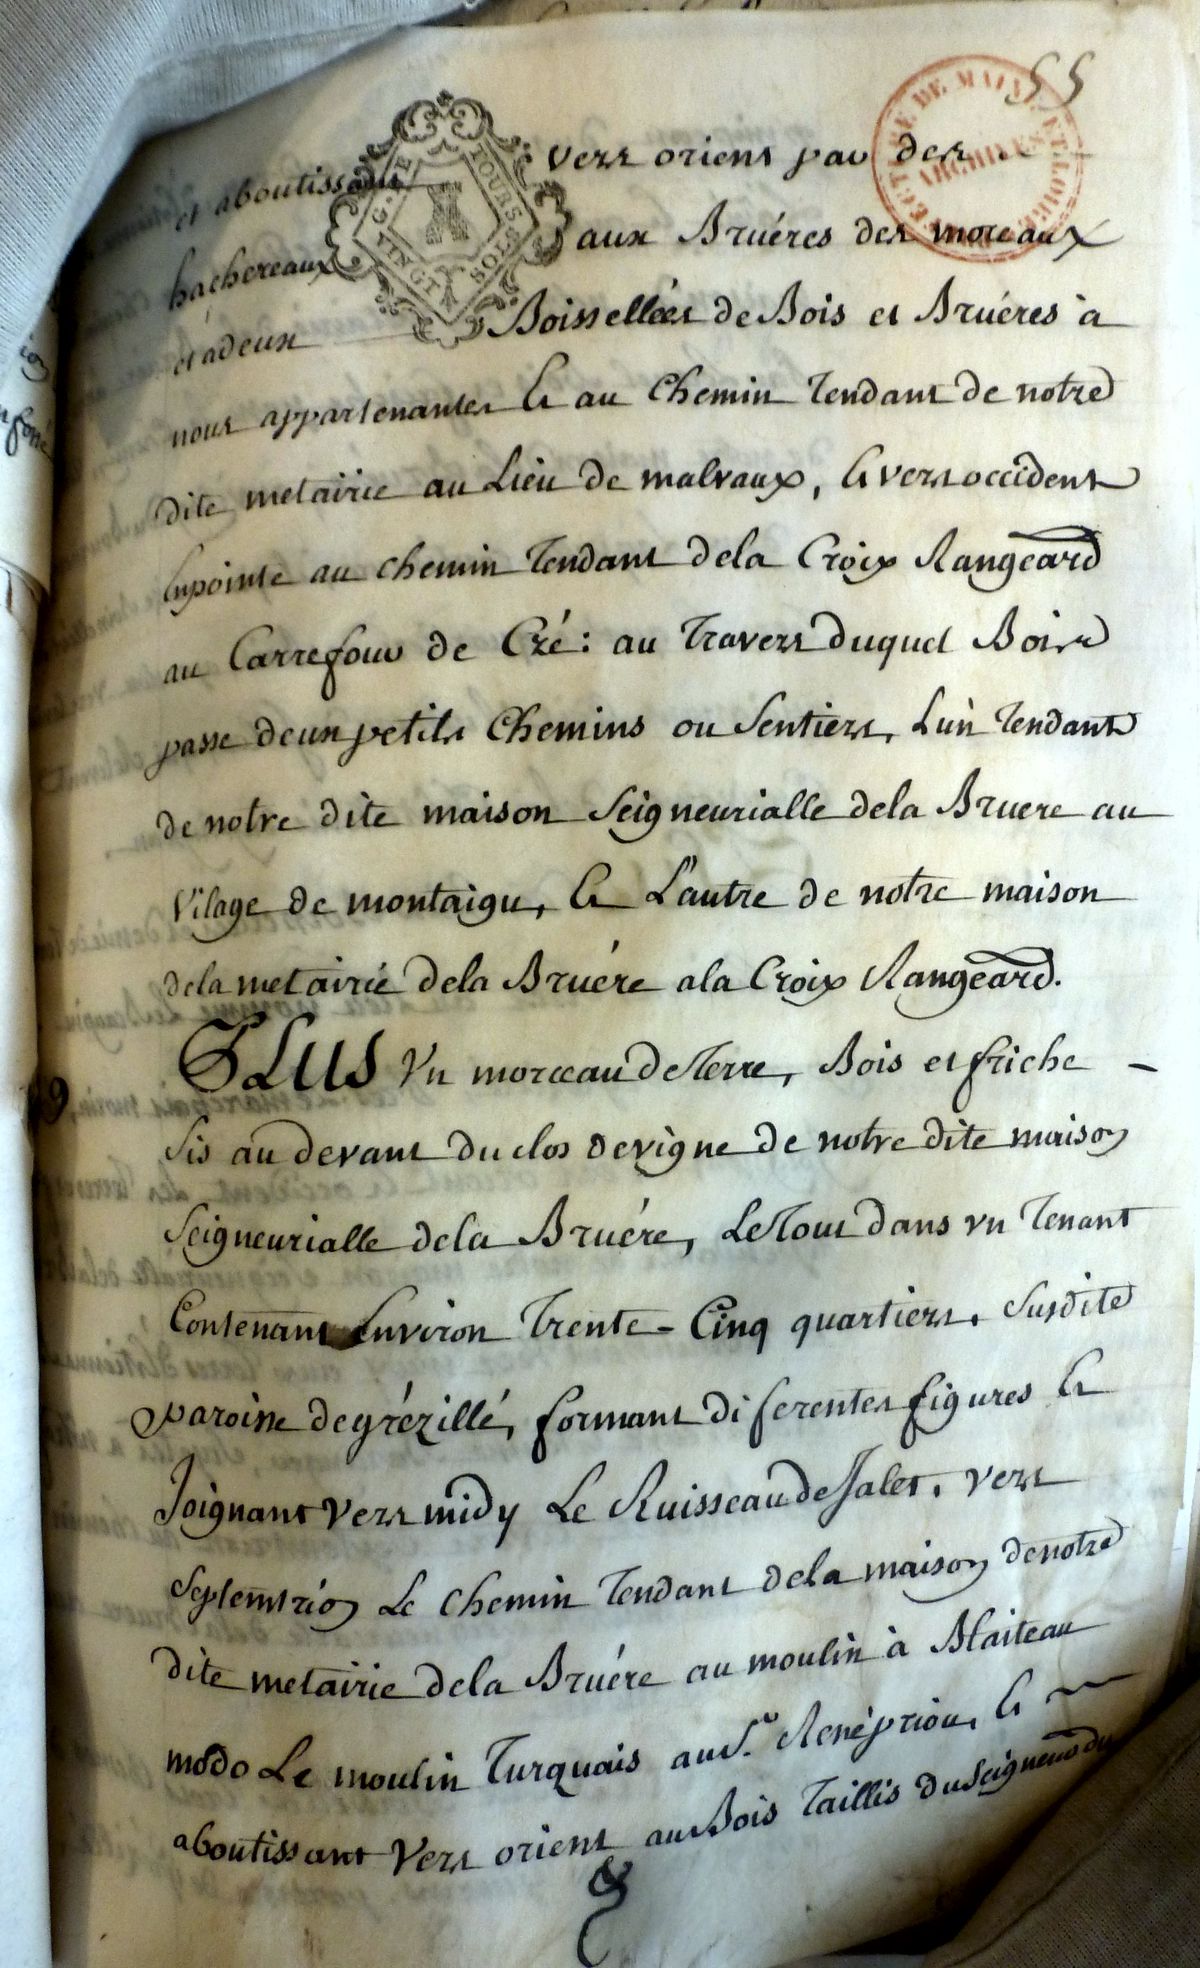 55
PREFECTURE DE MAINE ET LOIRE
ARCHIVES
G. DE TOURS
VINGT SOLS
et aboutissant vers orient par des
hachereaux aux Bruéres des morceaux
et adeux Boissellées de Bois et Bruéres à
nous appartenantes & au Chemin Tendant de notre
dite metairie au Lieu de malvaux, & vers occident
Enpointe au chemin Tendant dela Croix Rangeard
au Carrefour de Cré : au Travers duquel Bois
passe deux petits Chemins ou Sentiers, Lun Tendant
de notre dite maison Seigneurialle dela Bruere au
Vilage de montaigu, & L'autre de notre maison
dela metairie dela Bruére ala Croix Rangeard.
PLUS Vn morceau de Terre, Bois et friche
Sis au devant du clos de vigne de notre dite maison
Seigneurialle dela Bruére, Le Tout dans vn Tenant
Contenant Environ Trente-Cinq quartiers, Susdite
paroisse de grézillé, formant diferentes figures &
Joignant vers midy Le Ruisseau de Jalet, vers
Septemtrion Le chemin Tendant dela maison denotre
dite metairie dela Bruére au moulin à Blaiteau
modo Le moulin Turquais au Sr. René priou, &
aboutissant vers orient au Bois Taillis du Seigneur du
9